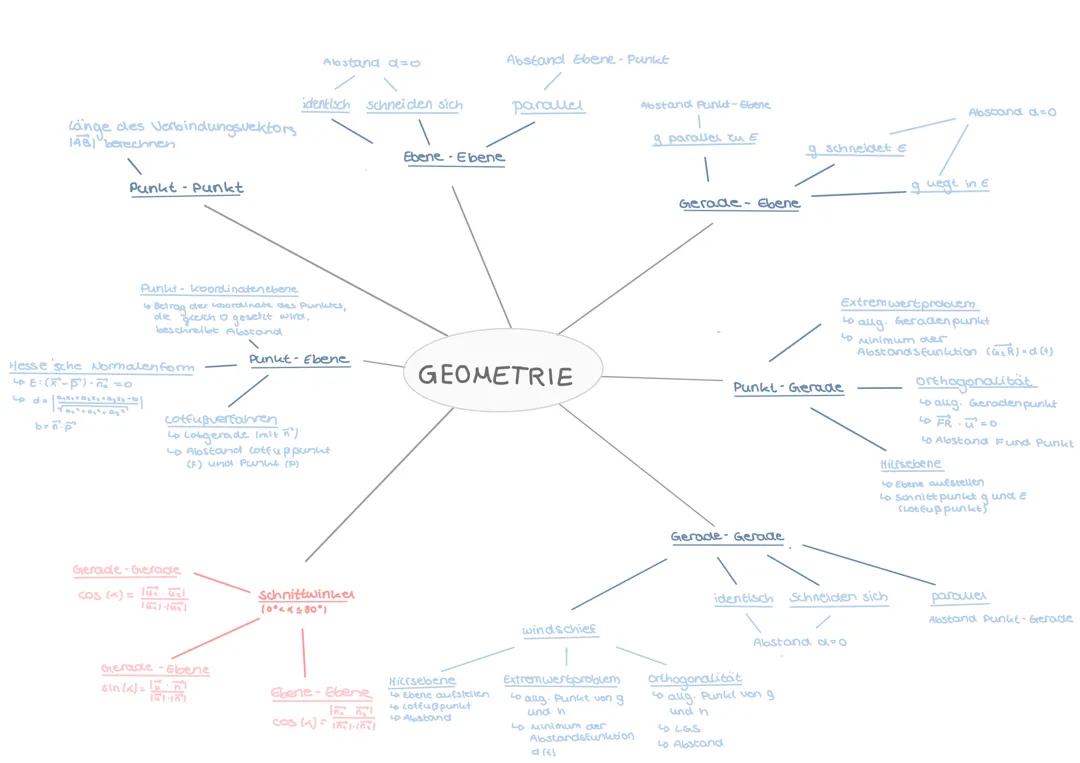 GEOMETRIE
Punkt - Punkt
Länge des Verbindungsvektors
|AB| berechnen
Ebene - Ebene
identisch
schneiden sich
Abstand d=0
parallel
Abstand Ebene - Punkt
Gerade - Ebene
g parallel zu E
Abstand Punkt - Ebene
g schneidet E
g liegt in E
Abstand d=0
Punkt - Ebene
Punkt - Koordinatenebene
↳ Betrag der Koordinate des Punktes,
die gleich 0 gesetzt wird,
beschreibt Abstand
Hesse'sche Normalenform
↳ E: (x⃗ - p⃗) · n⃗₀ = 0
b = n⃗ · p⃗
Lotfußverfahren
↳ Lotgerade (mit n⃗)
↳ Abstand Lotfußpunkt
(F) und Punkt (P)
Punkt - Gerade
Extremwertproblem
↳ allg. Geradenpunkt
↳ Minimum der
Abstandsfunktion (GₜR) = d(t)
Orthogonalität
↳ allg. Geradenpunkt
↳ FR · u⃗ = 0
↳ Abstand F und Punkt
Hilfsebene
↳ Ebene aufstellen
↳ Schnittpunkt g und E
(Lotfußpunkt)
Gerade - Gerade
windschief
Hilfsebene
↳ Ebene aufstellen
↳ Lotfußpunkt
↳ Abstand
Extremwertproblem
↳ allg. Punkt von g
und h
↳ Minimum der
Abstandsfunktion
d(t)
Orthogonalität
↳ allg. Punkt von g
und h
↳ LGS
↳ Abstand
identisch
schneiden sich
Abstand d=0
parallel
Abstand Punkt - Gerade
Schnittwinkel
Gerade - Gerade
cos(α) = |u₁ · u₂| / |u₁| · |u₂|
Gerade - Ebene
sin(α) = |u · n| / |u| · |n|
Ebene - Ebene
cos(α) = |n₁ · n₂| / |n₁| · |n₂|